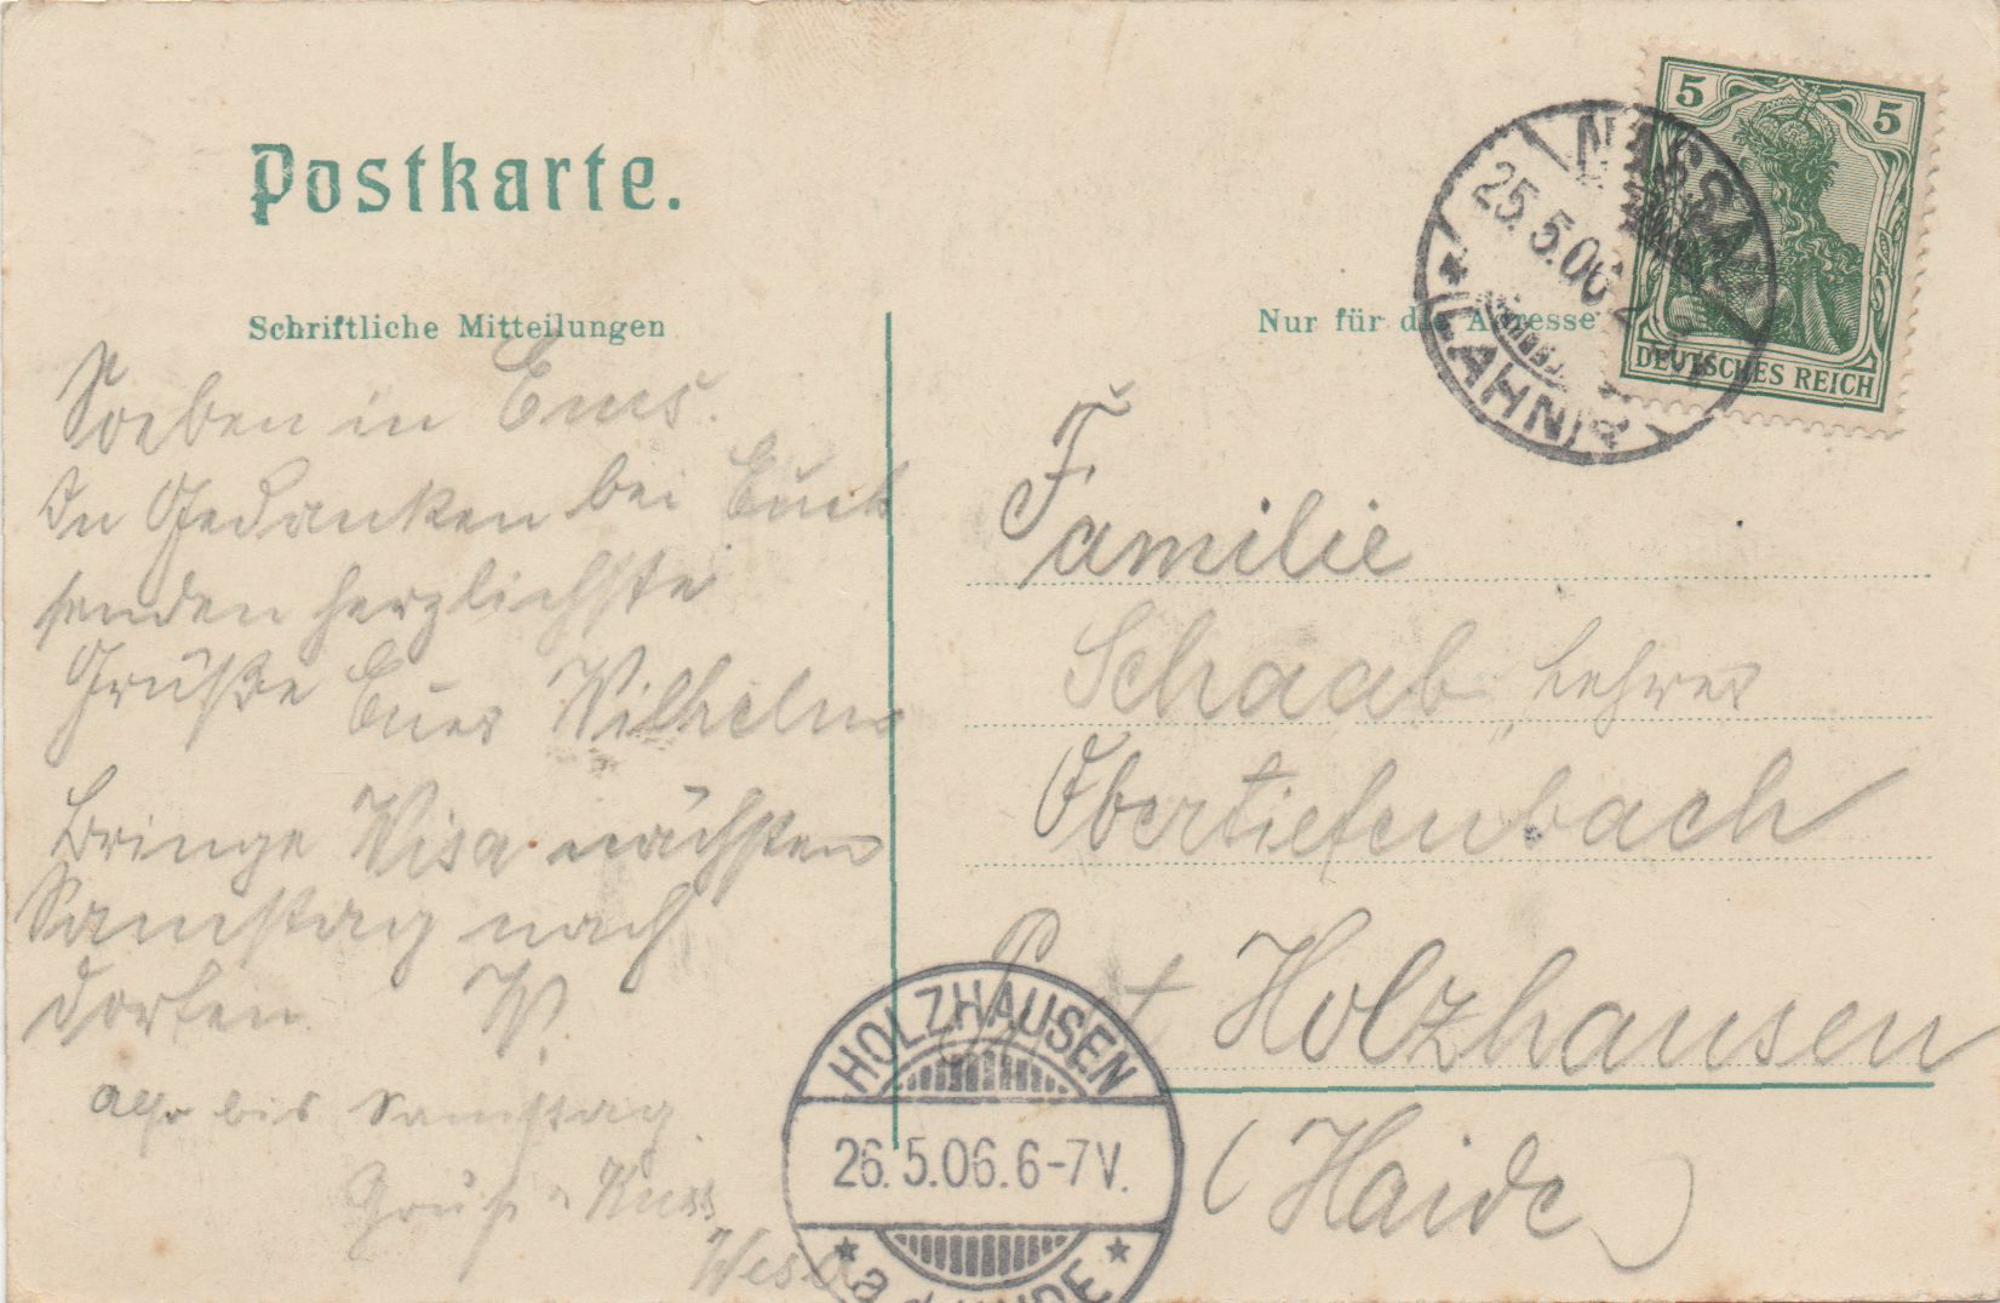 Postkarte.
Schriftliche Mitteilungen
Nur für die Adresse
5 5
DEUTSCHES REICH
NASSAU
25.5.06
(LAHN)
Soeben in Ems.
In Gedanken bei Euch
senden herzlichste
Grüße Euer Wilhelm
Bringe Wisa nächsten
Samstag nach
dorten W.
Also bis Samstag.
Gruß u Kuss
Familie
Schaab, Lehrer
Obertiefenbach
Post Holzhausen
(Haide)
HOLZHAUSEN
26.5.06.6-7V.
* a.d. HAIDE *